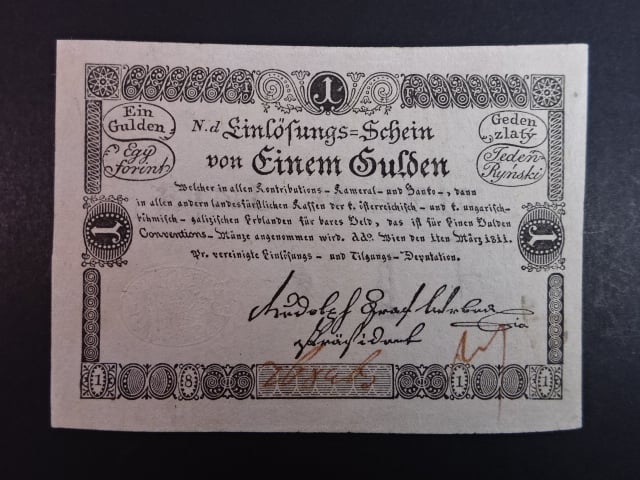 1
Ein
Gulden
Egy
forint
Geden
zlatý
Jeden
Ryński
N.d Einlösungs=Schein
von Einem Gulden
Welcher in allen Kontributions- Kameral- und Banko-, dann
in allen andern landesfürstlichen Kassen der k. österreichisch- und k. ungarisch-
böhmisch- galizischen Erblanden für bares Geld, das ist für Einen Gulden
Conventions- Münze angenommen wird. ddo. Wien den 1ten März 1811.
Pr. vereinigte Einlösungs- und Tilgungs-Deputation.
1
1
Rudolph Graf Wrbna
Präsident
1 8 1 1